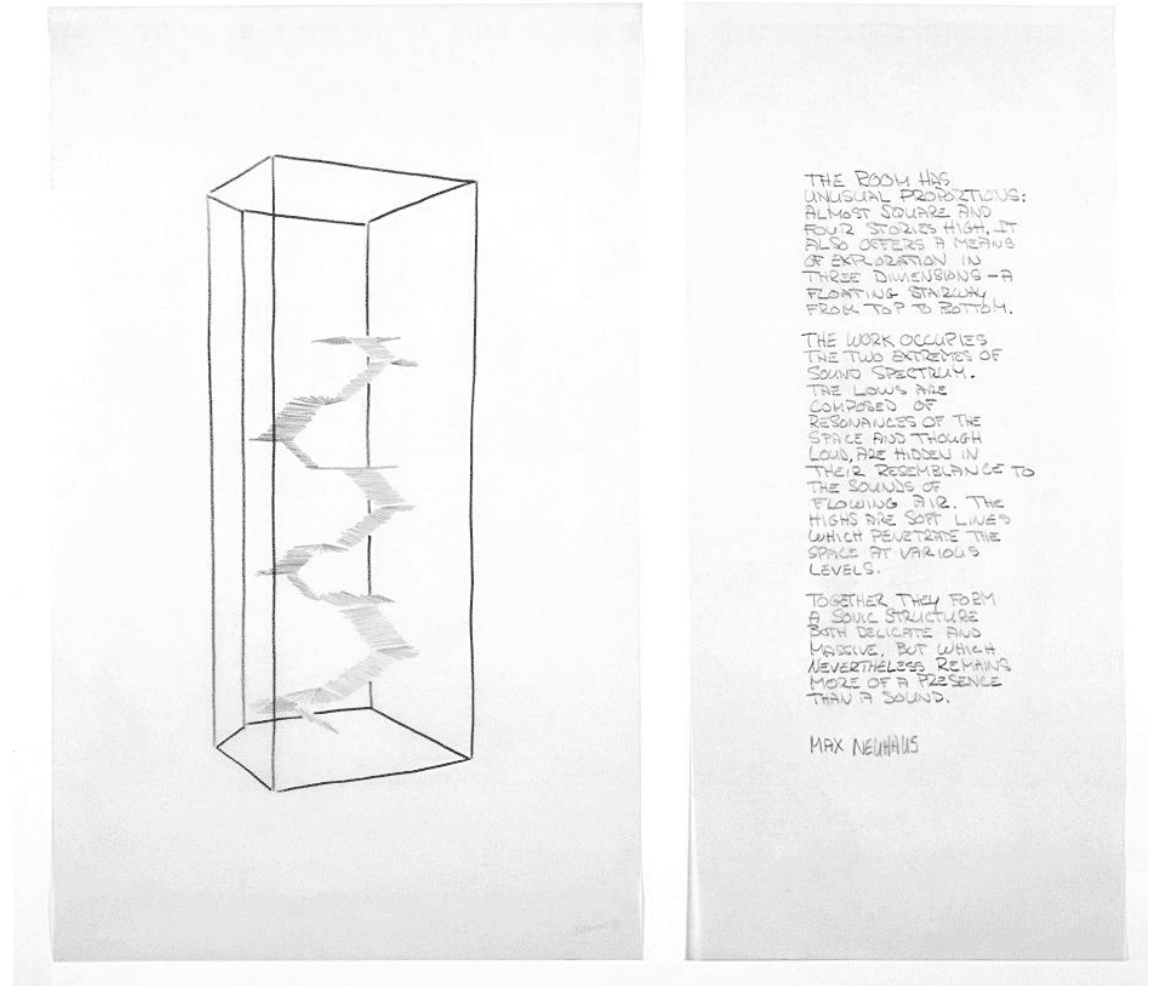 THE ROOM HAS
UNUSUAL PROPORTIONS:
ALMOST SQUARE AND
FOUR STORIES HIGH. IT
ALSO OFFERS A MEANS
OF EXPLORATION IN
THREE DIMENSIONS – A
FLOATING STAIRWAY
FROM TOP TO BOTTOM.
THE WORK OCCUPIES
THE TWO EXTREMES OF
SOUND SPECTRUM.
THE LOWS ARE
COMPOSED OF
RESONANCES OF THE
SPACE AND THOUGH
LOUD, ARE HIDDEN IN
THEIR RESEMBLANCE TO
THE SOUNDS OF
FLOWING AIR. THE
HIGHS ARE SOFT LINES
WHICH PENETRATE THE
SPACE AT VARIOUS
LEVELS.
TOGETHER THEY FORM
A SONIC STRUCTURE
BOTH DELICATE AND
MASSIVE, BUT WHICH
NEVERTHELESS REMAINS
MORE OF A PRESENCE
THAN A SOUND.
MAX NEUHAUS